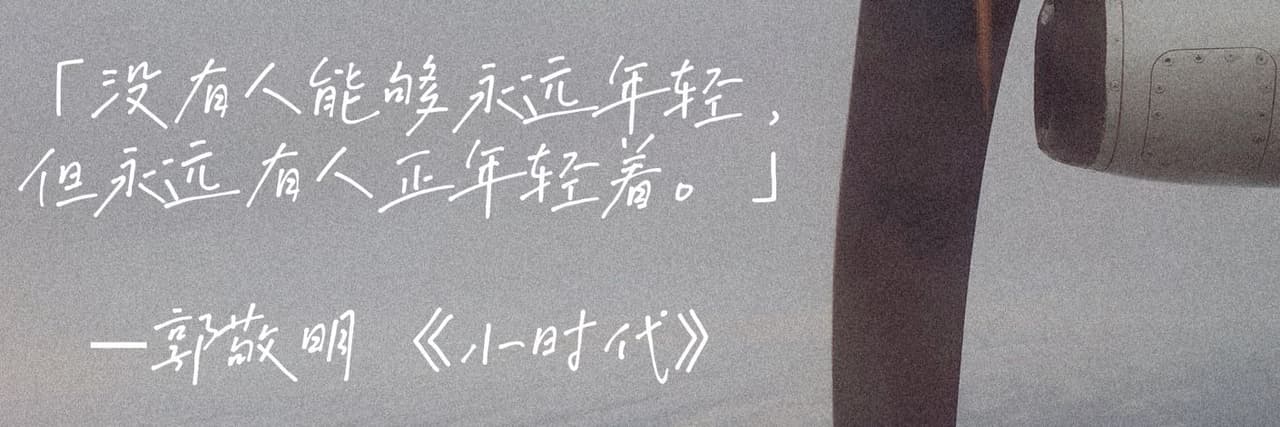 「没有人能够永远年轻，
但永远有人正年轻着。」
—郭敬明 《小时代》